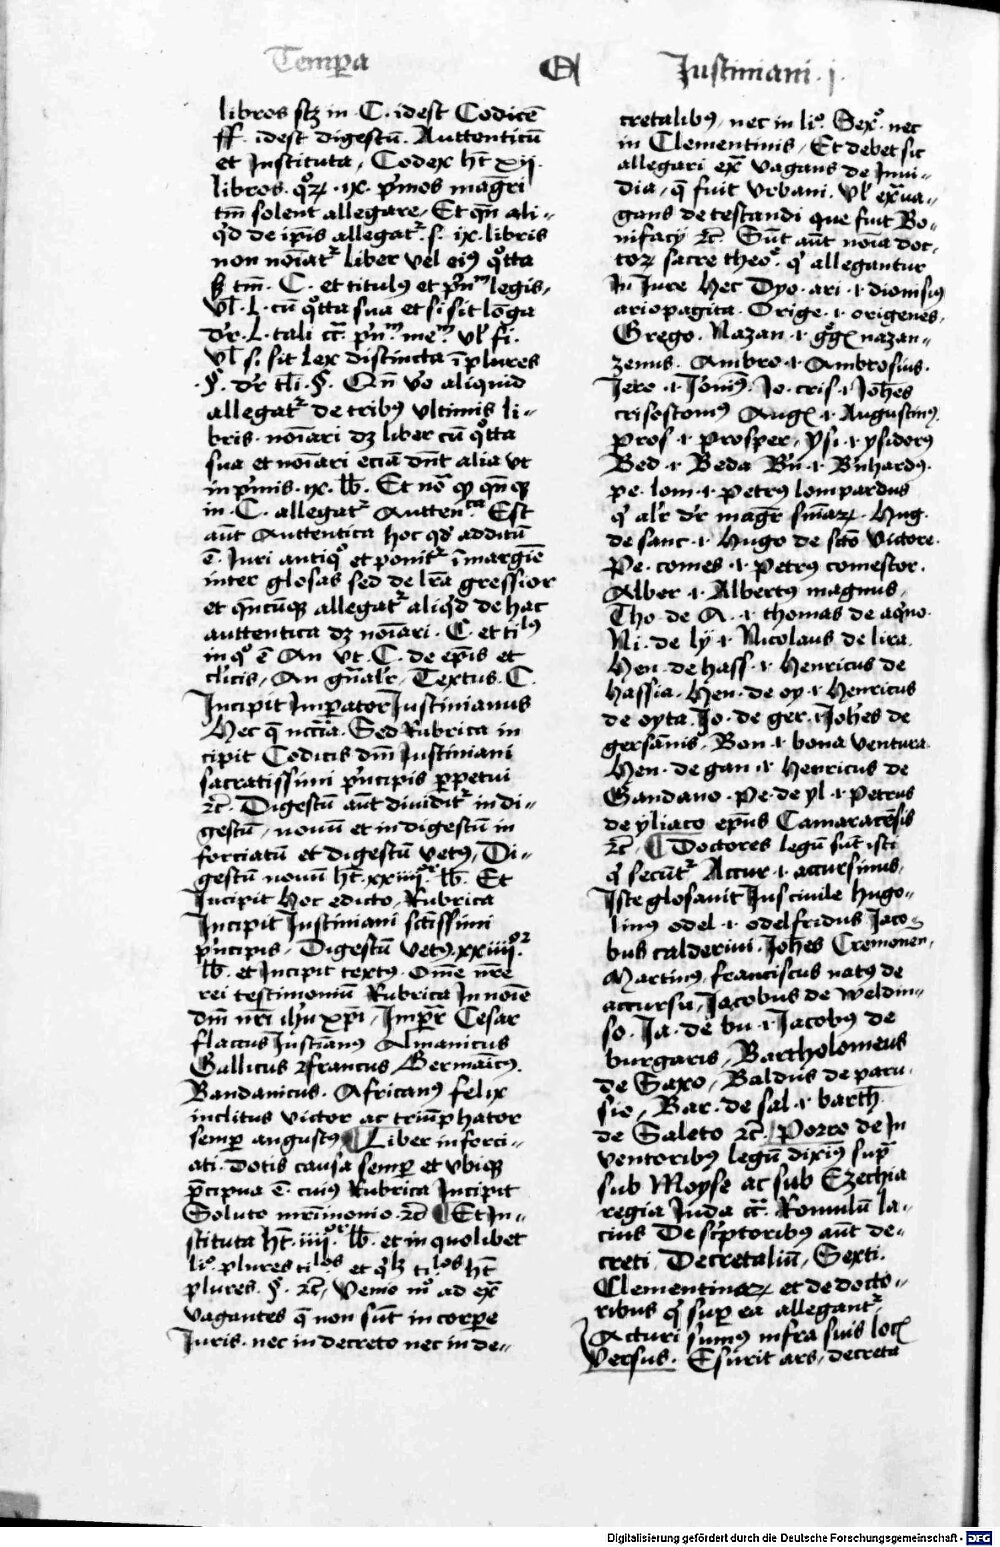 Temp̲a
Iustiniani · j ·
libros scꝫ in · C · idest Codicē
ff · idest digestū · Auttenticū
et Instituta / Codex hꝫ xij
libros · qͦꝝ · ix · p̄mos magr̄i
tm̄ solent allegare / Et qn̄ ali-
qd̄ de ip̄is allegat᷑ · s · ix · libris
non noīat᷑ liber vel eiꝰ qͦtta
ꝫ tm̄ · C · et titulus et pn̄m legis /
vl̄ · L · cū qͦtta sua et si sit lōga
dr̄ · L · tali cc̄ · pn̄m · mem · vl̄ fi ·
vl̄ s · sit lex distincta ī plures
· § · dr̄ tl̄i · § · Qn̄ v̄o aliquid
allegat᷑ de tribꝰ vltimis li-
bris · noīari dꝫ liber cū qͦtta
sua et noīari eciā dn̄t alia vt
in p̄mis · ix · lb̄ · Et nō qn̄qꝫ
in · C · allegat᷑ Auttenca Est
aūt Auttentica hoc qd̄ additū
ē · Iuri antiqͦ et ponit᷑ ī margīe
inter glosas sed de lr̄a gressior
et qn̄cūqꝫ allegat᷑ aliqd̄ de hac
auttentica dꝫ noīari · C · et tilꝰ
in qͦ ē An vt · C · de ep̄is et
cl̄icis / An gn̄alr̄ / Textus · C ·
Incipit Imp̲ator Iustinianus
Hec q̄ nccīa · Sed Rubrica in
cipit Codicis dn̄i Iustiniani
sacratissimi p̄ncipis p̲petui
⁊c̄ · Digestū aūt diuidit᷑ in di-
gestū / nouū et in digestū in
forciatū et digestū vetꝰ / Di-
gestū nouū hꝫ · xxiiij · lb̄ · Et
Incipit Hoc edicto / Rubrica
Incipit Iustiniani sc̄issimi
p̄ncipis / Digestū vetꝰ · xxiiij ·
lb̄ · et Incipit textꝰ · Om̄e nr̄e
rei testimoniū Rubrica In noīe
dn̄i nr̄i ihū xp̄i / Imp̲r̄ Cesar
flacius Iustīanꝰ Almanicus
Gallicus ⁊ francus / Germaīcꝰ ·
Bandanicus · Africanꝰ felix
inclitus victor ac triūphator
semp̲ angustꝰ ¶ Liber inforci-
ati · dotis causa semp̲ et vbiqꝫ
p̄cipua ē · cuiꝰ Rubrica Incipit
Soluto mr̄imonio · ⁊c̄ ¶ Et In-
stituta hꝫ · iiijor · lb̄ · et in quolibet
liͦ · plures tilos et qꝫ tilos hꝫ
plures · § · ⁊c̄ / Venio mͦ ad ex̄
vagantes q̄ non sūt in corp̲e
Iuris · nec in decreto nec in de-
cretalibꝰ / nec in liͦ · Sexͦ · nec
in Clementinis / Et debet sic
allegari ex̄ vagans de Inui-
dia / q̄ fuit vrbani · vl̄ ex̄ua-
gans de testandi que fuit Bo-
nifacij ⁊c̄ · Sūt aūt noīa doc-
toꝝ sacre theoͦ · q̄ allegantur
In Iure Hec Dyo · ari · ⁊ dionisiꝰ
ariopagita · Orige · ⁊ origenes ·
Grego · Nazan · ⁊ gͦgꝰ nazan-
zenus · Ambro · ⁊ Ambrosius ·
Iero · ⁊ Iōniꝰ · Io · cris · ⁊ Joh̄es
crisostomꝰ Augꝰ · ⁊ Augustinꝰ ·
pros · ⁊ prosper / ysi · ⁊ ysidorꝰ
Bed · ⁊ Beda Bn̄ · ⁊ Bn̄hardꝰ ·
pe · lom · ⁊ petrꝰ lompardus
q̄ alr̄ dr̄ magr̄ sn̄iaꝝ · Hug ·
de sanc · ⁊ Hugo de sctō victore ·
Pe · comes · ⁊ petrꝰ comestor ·
Alber ⁊ Albertꝰ magnus /
Tho · de A · ⁊ thomas de aqͥno ·
Ni · de ly ⁊ Nicolaus de lira ·
Hen · de hass · ⁊ Henricus de
hassia · Hen · de oy · ⁊ Henricus
de oyta · Io · de ger · ⁊ Joh̄es de
gersānis · Bon · ⁊ bona ventura ·
Hen · de gan · ⁊ Henricus de
Gandano · Pe · de yl · ⁊ Petrus
de yliaco ep̄us Camaracēsis
⁊c̄ · ¶ Doctores legū sūt isti
q̄ secūt᷑ Accur · ⁊ accursinus /
Iste glosauit Ius ciuile Hugo-
linꝰ odel · ⁊ · odelfridus Jaco-
bus calderini · Joh̄es Cremonen̄ ·
Martinꝰ / franciscus natꝰ de
accursu / Jacobus de weldin-
so · Ja · de bu · ⁊ Jacobꝰ de
burgaris / Bartholomeus
de Saxo / Baldus de paru-
sio / Bar · de sal · ⁊ barth̄ ·
de Saleto ⁊c̄ / Porro de In
ventoribꝰ legū diximꝰ sup̄
sub Moyse ac sub Ezechia
regia Iuda cc̄ · Romulū la-
cius De sc̄ptoribus aūt de-
creti · Decretaliū / Sexti ·
Clementinaꝝ et de docto-
ribus q̄ sup̲ ea allegant᷑
Acturi sumꝰ infra suis locꝭ
Versus · Esurit ars / decreta
Digitalisierung gefördert durch die Deutsche Forschungsgemeinschaft - DFG